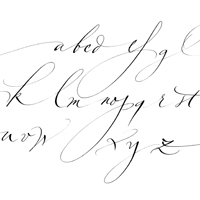 abcd efg l
k lm nopq r st
u v w x y z